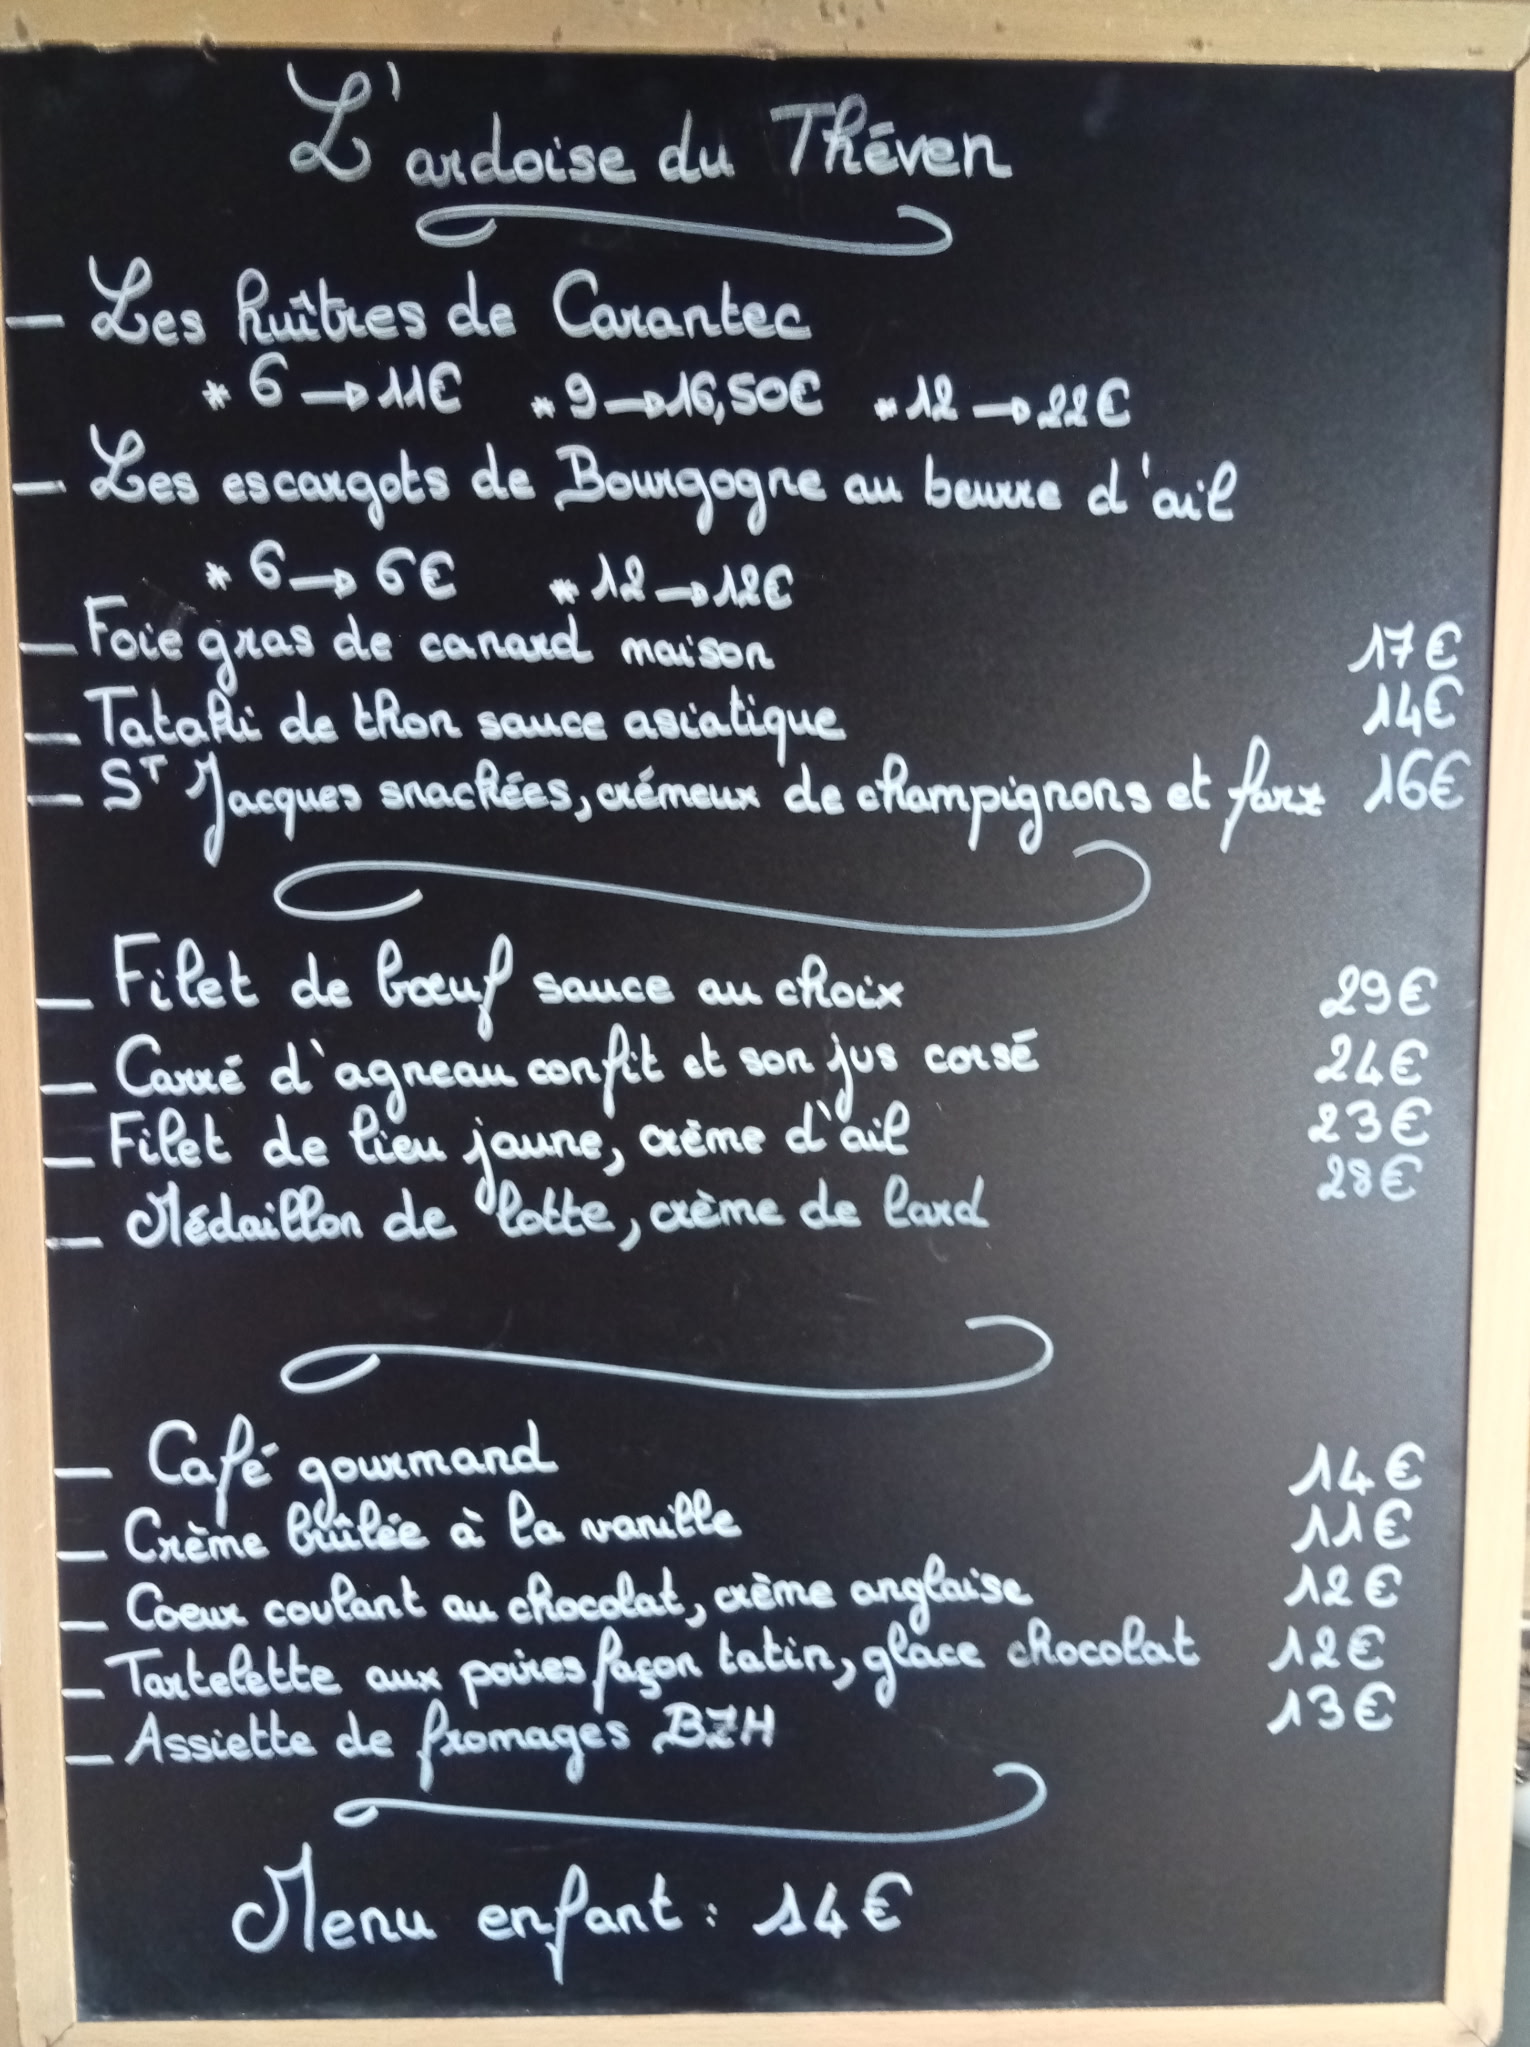 L'ardoise du Théven
— Les huîtres de Carantec
* 6 → 11€ * 9 → 16,50€ * 12 → 22€
— Les escargots de Bourgogne au beurre d'ail
* 6 → 6€ * 12 → 12€
— Foie gras de canard maison 17€
— Tataki de thon sauce asiatique 14€
— ST Jacques snackées, crémeux de champignons et farz 16€
— Filet de bœuf sauce au choix 29€
— Carré d'agneau confit et son jus corsé 24€
— Filet de lieu jaune, crème d'ail 23€
— Médaillon de lotte, crème de lard 28€
— Café gourmand 14€
— Crème brûlée à la vanille 11€
— Coeur coulant au chocolat, crème anglaise 12€
— Tartelette aux poires façon tatin, glace chocolat 12€
— Assiette de fromages BZH 13€
Menu enfant : 14€